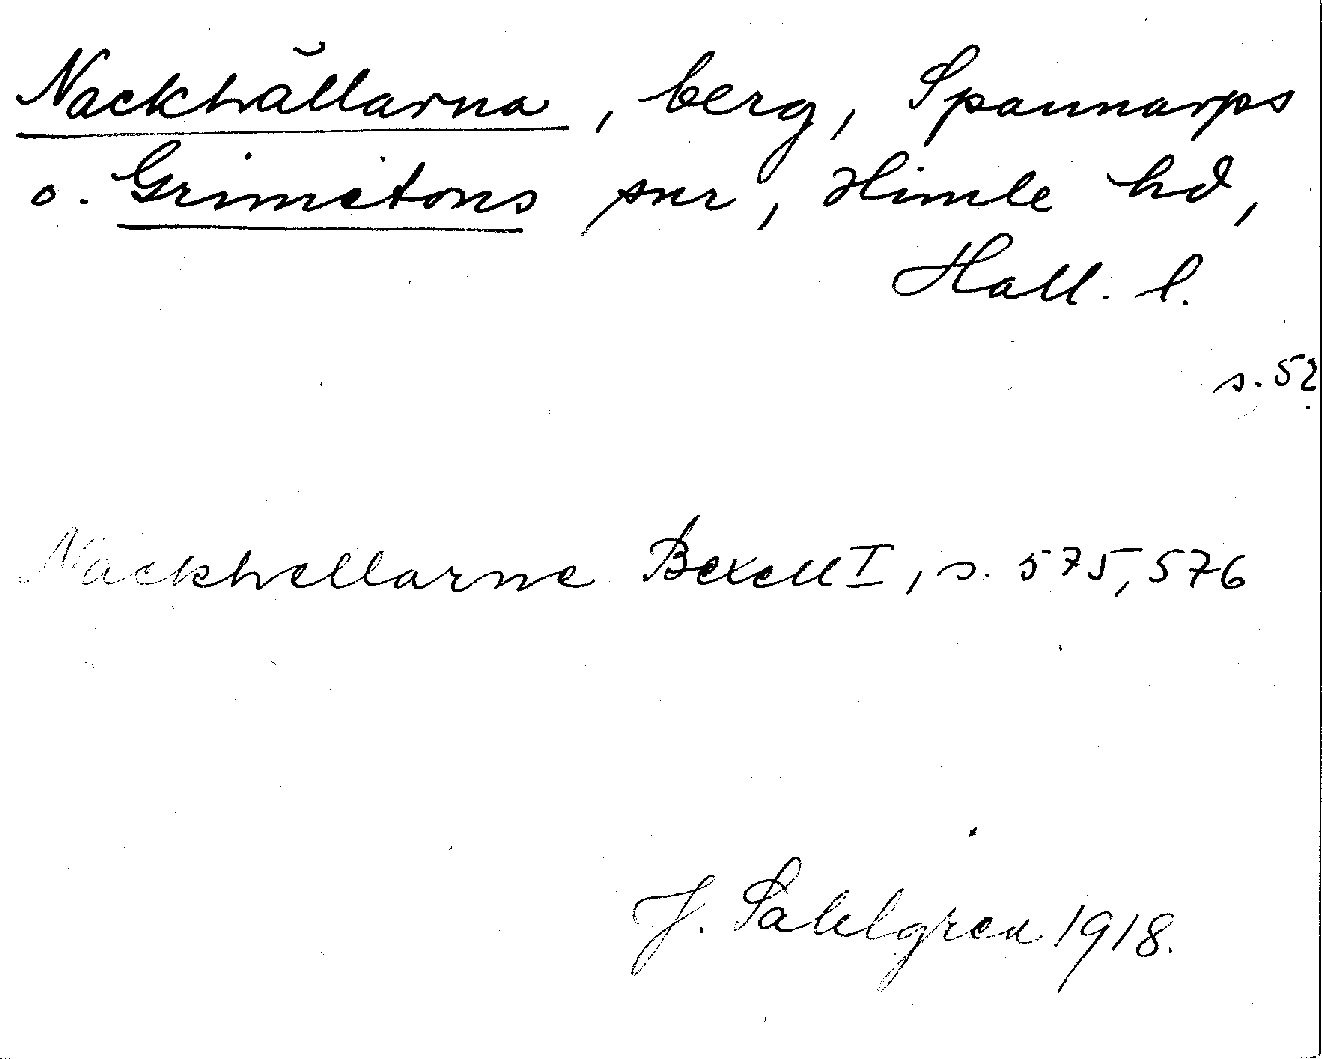 Nackhällarna, berg, Spannarps
o. Grimetons snr, Himle hd,
Hall. l.
s. 52
Nackhellarne Bexell I, s. 575, 576
J. Sahlgren 1918.